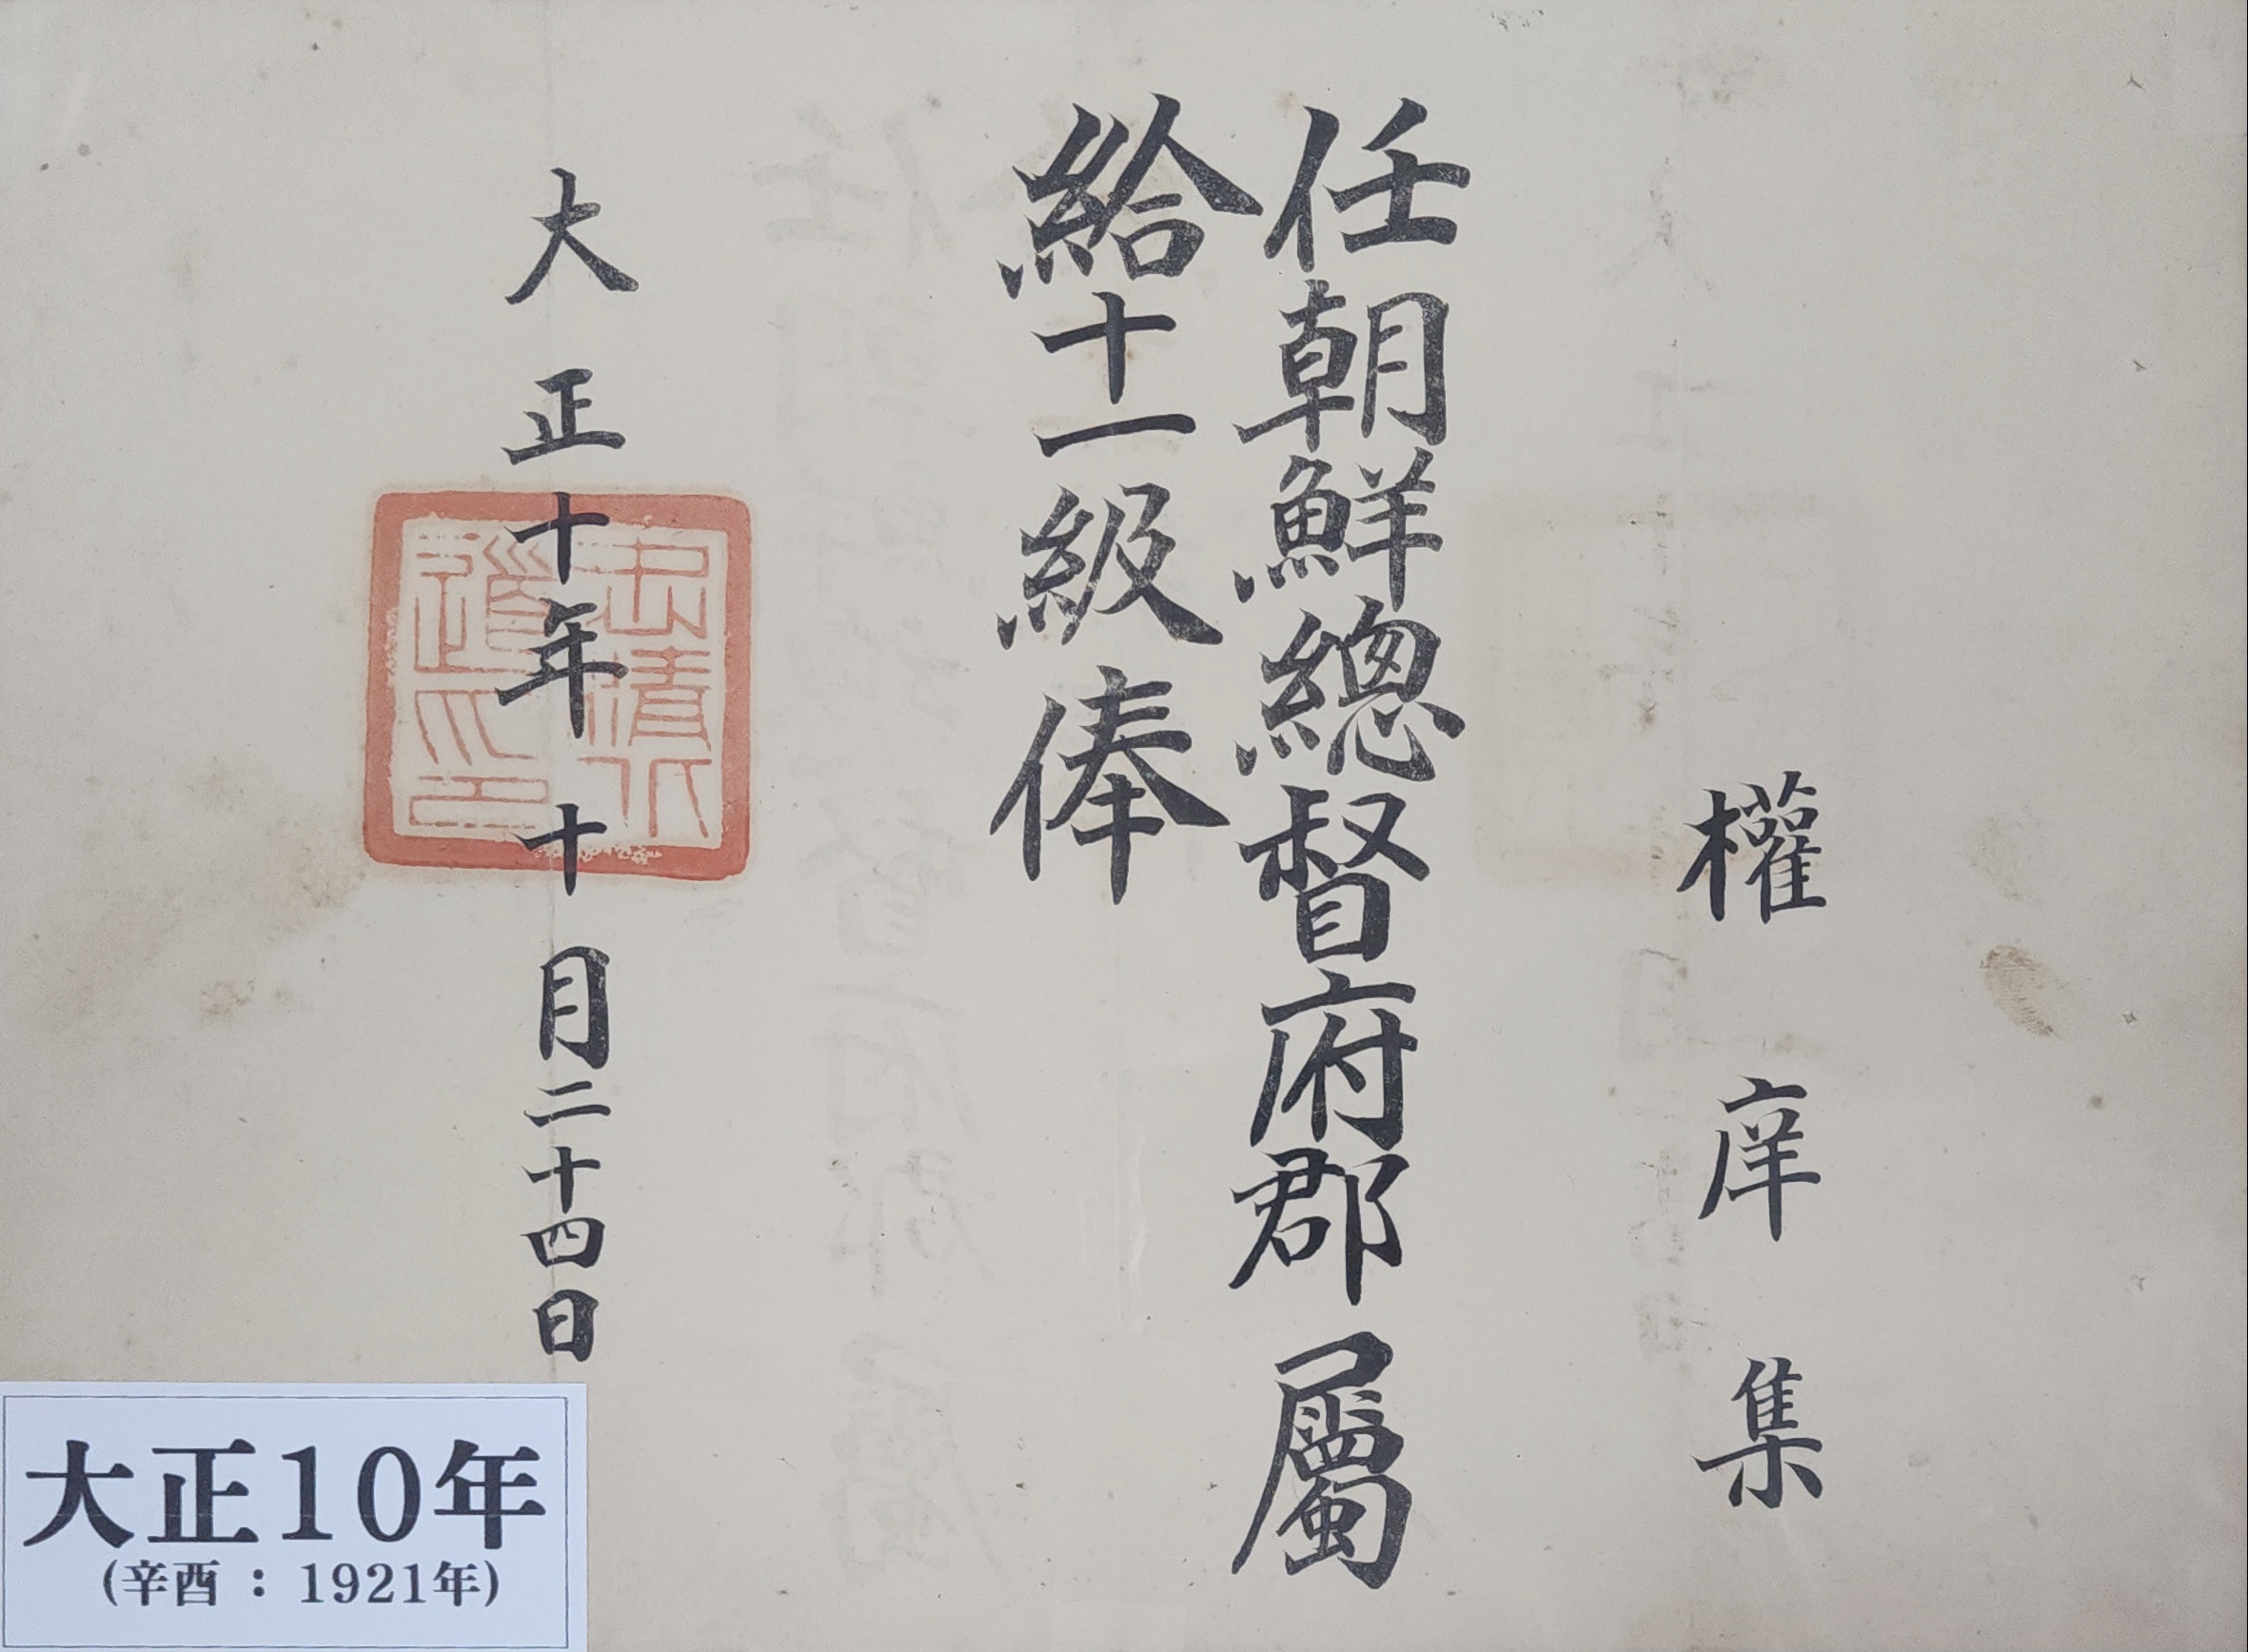 權庠集
任朝鮮總督府郡屬
給十一級俸
大正十年十月二十四日
忠清北
道之印
大正10年
(辛酉 : 1921年)